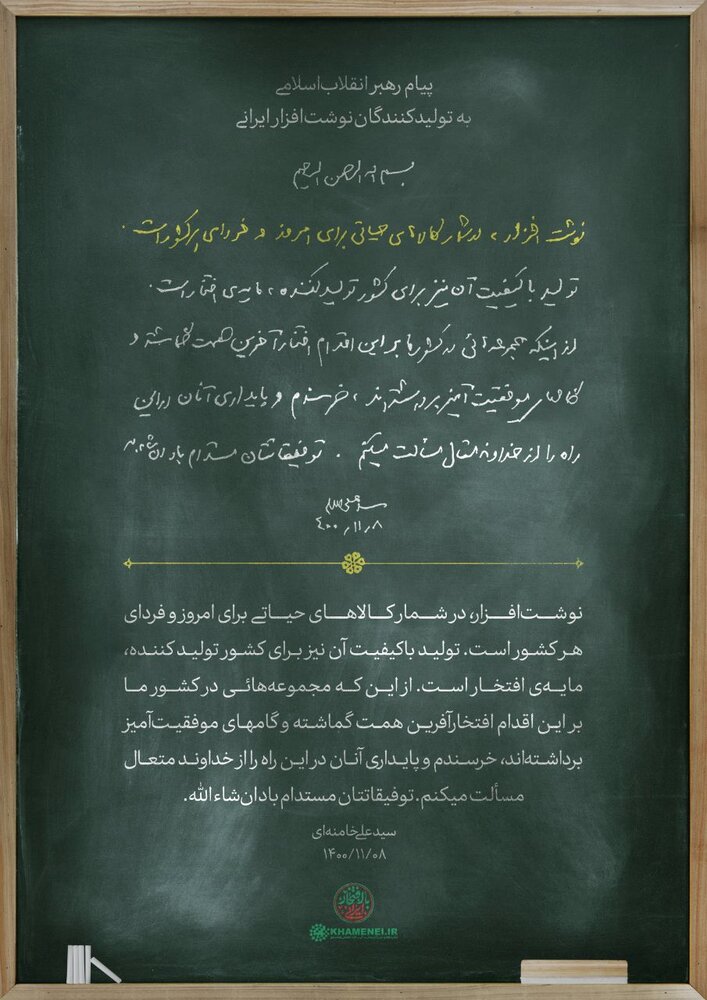 پیام رهبر انقلاب اسلامی
به تولیدکنندگان نوشت‌افزار ایرانی
بسم الله الرحمن الرحیم
نوشت افزار، در شمار کالاهای حیاتی برای امروز و فردای هر کشور است.
تولید باکیفیت آن نیز برای کشور تولیدکننده، مایه‌ی افتخار است.
از اینکه مجموعه‌هائی در کشور ما بر این اقدام افتخارآفرین همت گماشته و
گامهای موفقیت‌آمیز برداشته‌اند، خرسندم و پایداری آنان در این
راه را از خداوند متعال مسألت میکنم. توفیقاتشان مستدام باد ان‌شاءالله
سیدعلی خامنه‌ای
۴۰۰/۱۱/۸
نوشت‌افزار، در شمار کالاهای حیاتی برای امروز و فردای
هر کشور است. تولید باکیفیت آن نیز برای کشور تولید کننده،
مایه‌ی افتخار است. از این که مجموعه‌هائی در کشور ما
بر این اقدام افتخارآفرین همت گماشته و گامهای موفقیت‌آمیز
برداشته‌اند، خرسندم و پایداری آنان در این راه را از خداوند متعال
مسألت میکنم. توفیقاتتان مستدام باد ان‌شاءالله.
سیدعلی خامنه‌ای
۱۴۰۰/۱۱/۰۸
با افتخار ایرانی
KHAMENEI.IR